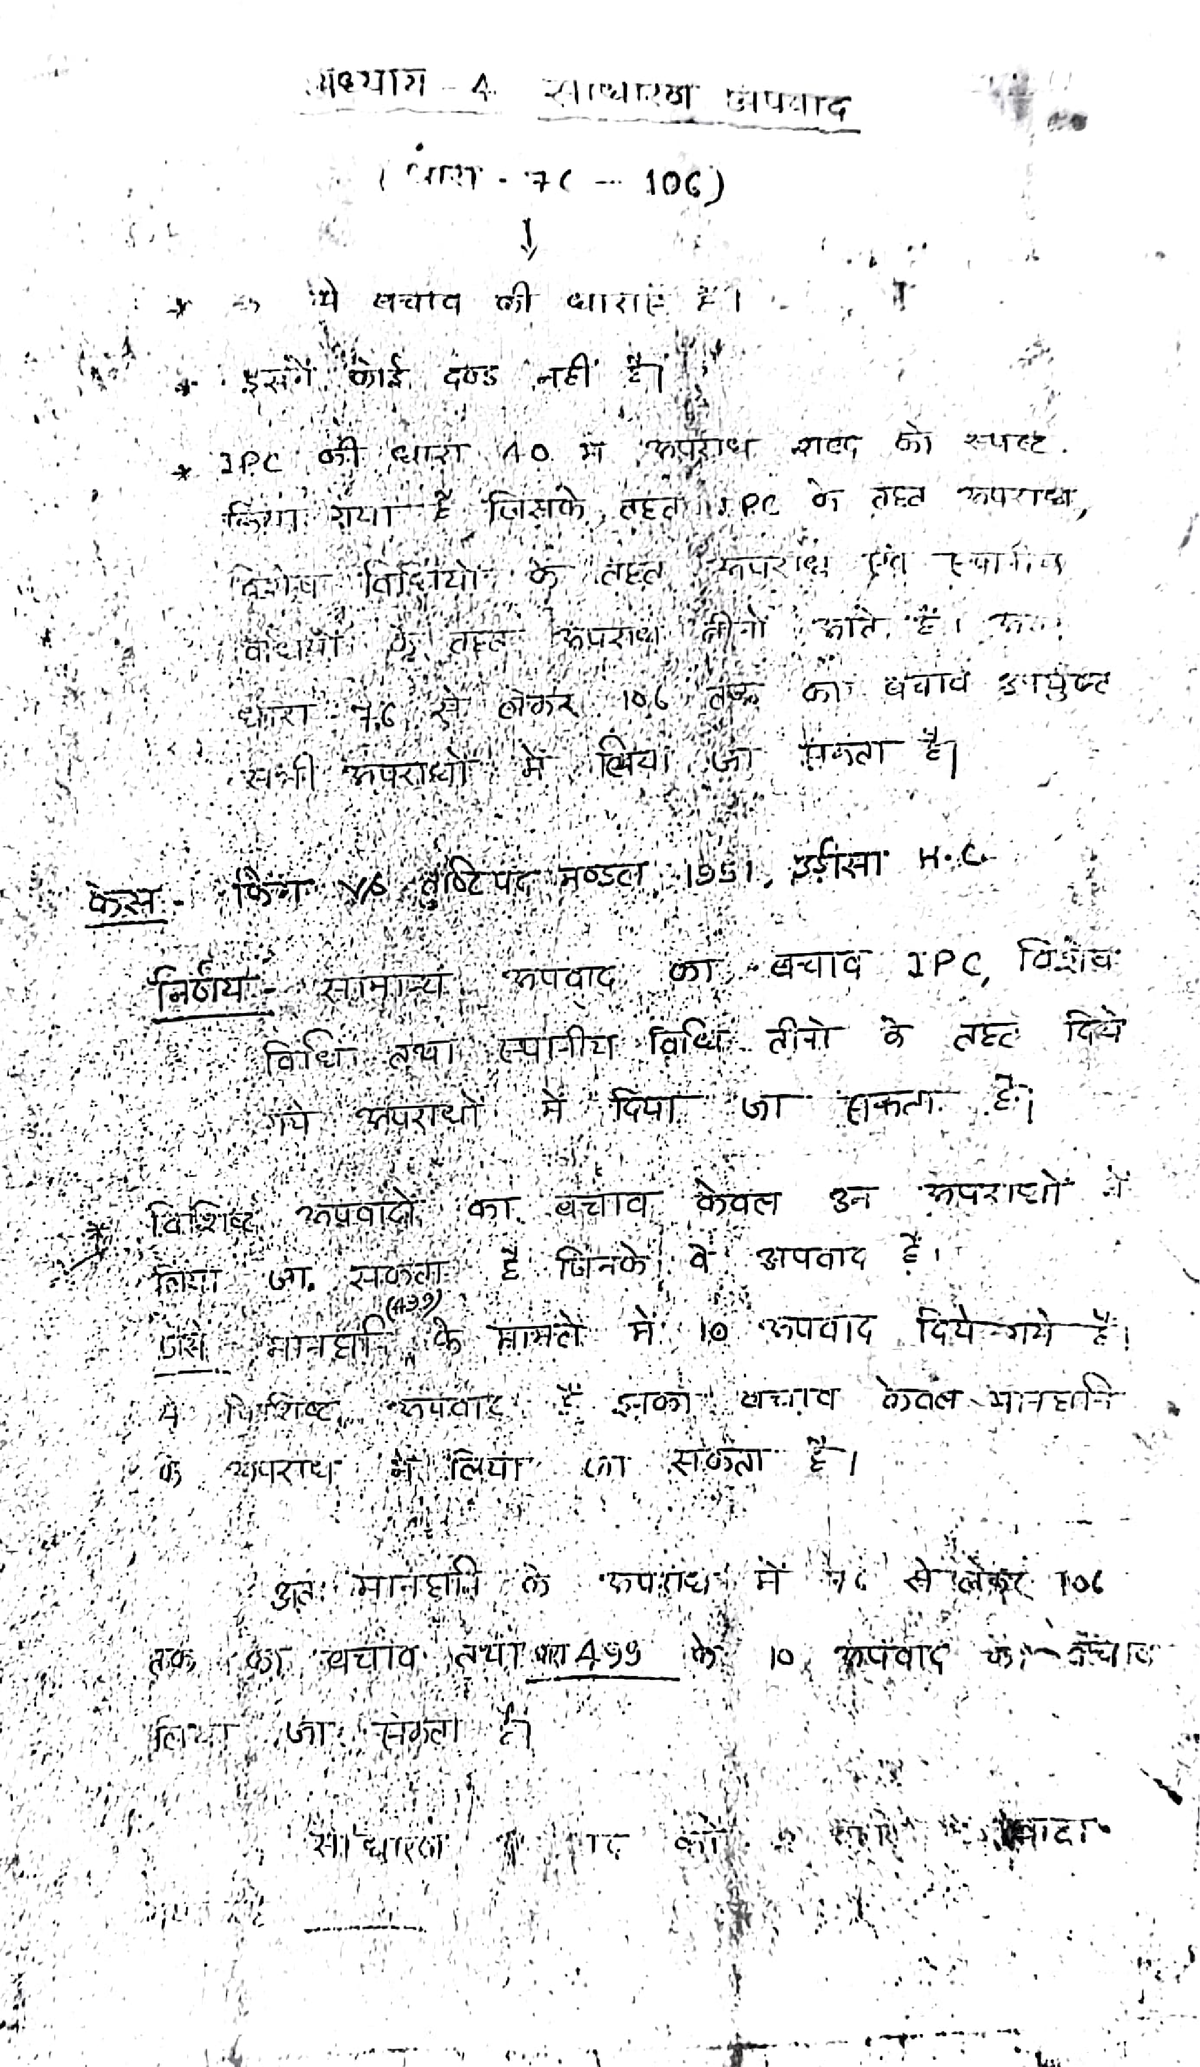 अध्याय - 4 साधारण अपवाद
(धारा - 76 - 106)
↓
* ये बचाव की धाराएं हैं।
* इसमें कोई दण्ड नहीं है।
* IPC की धारा 40 में अपराध शब्द को स्पष्ट
किया गया है जिसके तहत IPC के तहत अपराध,
विशेष विधियों के तहत अपराध एवं स्थानीय
विधियों के तहत अपराध तीनों आते हैं। अतः
धारा 76 से लेकर 106 तक का बचाव उपर्युक्त
सभी अपराधों में लिया जा सकता है।
केस - किंग V/S तुष्टिपद मण्डल 1951, उड़ीसा H.C.
निर्णय - सामान्य अपवाद का बचाव IPC, विशेष
विधि तथा स्थानीय विधि तीनों के तहत दिये
गये अपराधों में दिया जा सकता है।
* विशिष्ट अपवादों का बचाव केवल उन अपराधों में
लिया जा सकता है जिनके वे अपवाद हैं।
जैसे मानहानि (499) के मामले में 10 अपवाद दिये गये हैं।
ये विशिष्ट अपवाद हैं इनका बचाव केवल मानहानि
के अपराध में लिया जा सकता है।
अतः मानहानि के अपराध में 76 से लेकर 106
तक का बचाव तथा धारा 499 के 10 अपवाद का बचाव
लिया जा सकता है।
साधारण को